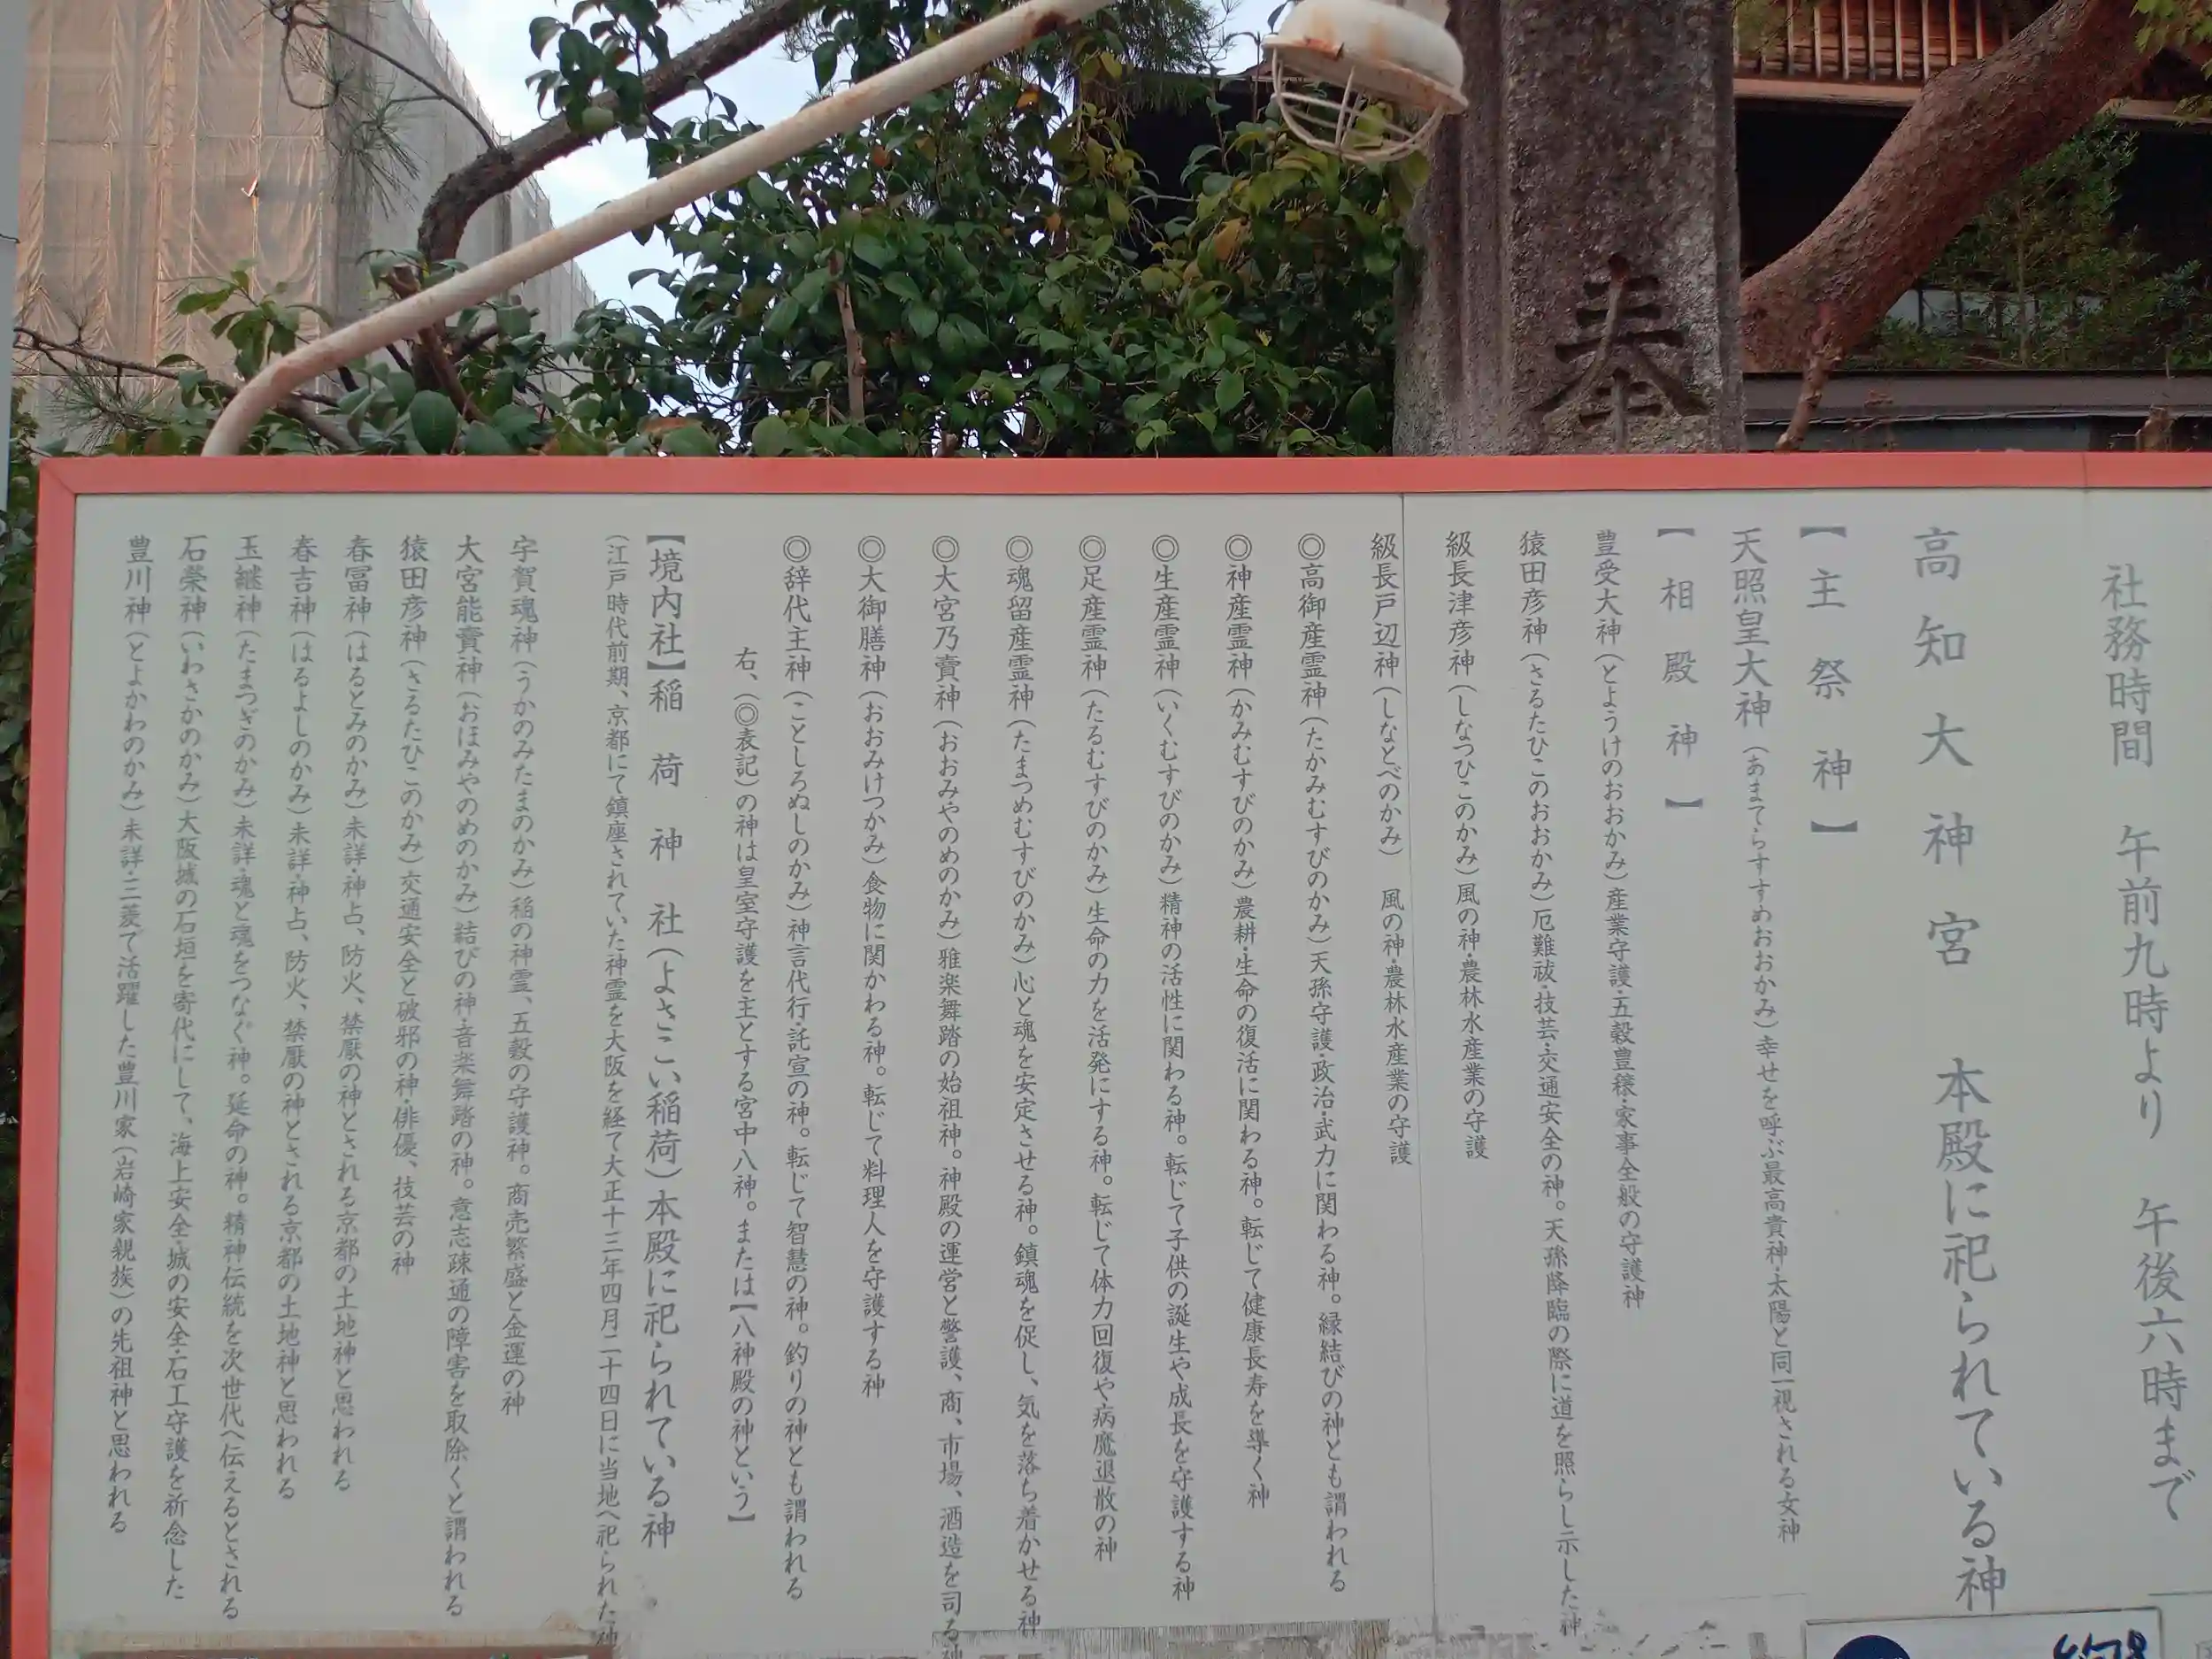 奉
社務時間　午前九時より　午後六時まで
高知大神宮　本殿に祀られている神
【主祭神】
天照皇大神（あまてらすすめおおかみ）幸せを呼ぶ最高貴神・太陽と同一視される女神
【相殿神】
豊受大神（とようけのおおかみ）産業守護・五穀豊穣・家事全般の守護神
猿田彦神（さるたひこのおおかみ）厄難祓・技芸・交通安全の神。天孫降臨の際に道を照らし示した神
級長津彦神（しなつひこのかみ）風の神・農林水産業の守護
級長戸辺神（しなとべのかみ）　風の神・農林水産業の守護
◎高御産霊神（たかみむすびのかみ）天孫守護・政治・武力に関わる神。縁結びの神とも謂われる
◎神産霊神（かみむすびのかみ）農耕・生命の復活に関わる神。転じて健康長寿を導く神
◎生産霊神（いくむすびのかみ）精神の活性に関わる神。転じて子供の誕生や成長を守護する神
◎足産霊神（たるむすびのかみ）生命の力を活発にする神。転じて体力回復や病魔退散の神
◎魂留産霊神（たまつめむすびのかみ）心と魂を安定させる神。鎮魂を促し、気を落ち着かせる神
◎大宮乃賣神（おおみやのめのかみ）雅楽舞踏の始祖神。神殿の運営と警護、商、市場、酒造を司る神
◎大御膳神（おおみけつかみ）食物に関かわる神。転じて料理人を守護する神
◎辞代主神（ことしろぬしのかみ）神言代行・託宣の神。転じて智慧の神。釣りの神とも謂われる
右、（◎表記）の神は皇室守護を主とする宮中八神。または【八神殿の神という】
【境内社】稲荷神社（よさこい稲荷）本殿に祀られている神
（江戸時代前期、京都にて鎮座されていた神霊を大阪を経て大正十三年四月二十四日に当地へ祀られた神
宇賀魂神（うかのみたまのかみ）稲の神霊、五穀の守護神。商売繁盛と金運の神
大宮能賣神（おほみやのめのかみ）結びの神・音楽舞踏の神。意志疎通の障害を取除くと謂われる
猿田彦神（さるたひこのかみ）交通安全と破邪の神・俳優、技芸の神
春冨神（はるとみのかみ）未詳・神占、防火、禁厭の神とされる京都の土地神と思われる
春吉神（はるよしのかみ）未詳・神占、防火、禁厭の神とされる京都の土地神と思われる
玉継神（たまつぎのかみ）未詳・魂と魂をつなぐ神。延命の神。精神伝統を次世代へ伝えるとされる
石榮神（いわさかのかみ）大阪城の石垣を寄代にして、海上安全・城の安全・石工守護を祈念した
豊川神（とよかわのかみ）未詳・三菱で活躍した豊川家（岩崎家親族）の先祖神と思われる